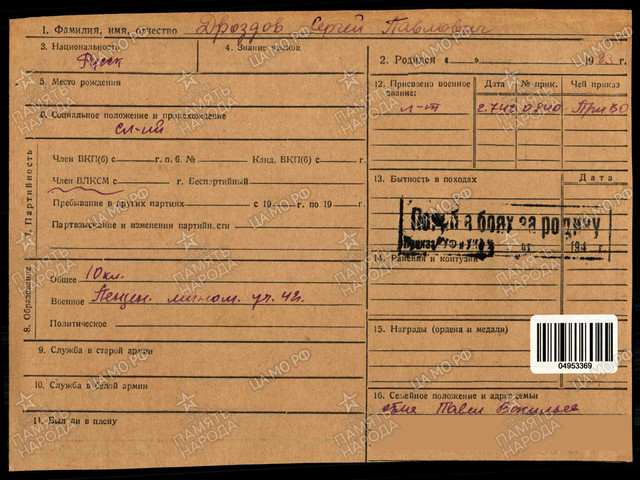 1. Фамилия, имя, отчество Дроздов Сергей Павлович
3. Национальность
Русск
4. Знание языков
2. Родился « » 192
5. Место рождения
12. Присвоено военное звание:
Дата
№ прик.
Чей приказ
л-т
0840
ПриВО
6. Социальное положение и происхождение
сл-ий
7. Партийность
Член ВКП(б) с г. п. б. № Канд. ВКП(б) с
Член ВЛКСМ с г. Беспартийный
Пребывание в других партиях с 19 г. по 19 г.
Партвзыскание и изменения партийности
13. Бытность в походах
Дата
Погиб в боях за родину
Приказ ГУФ и УК № от 194 г.
14. Ранения и контузии
8. Образование
Общее 10 кл.
Военное Пензен. мином. уч. 42г.
Политическое
15. Награды (ордена и медали)
9. Служба в старой армии
04953369
10. Служба в белой армии
16. Семейное положение и адрес семьи
отец Павел
11. Был ли в плену
ПАМЯТЬ НАРОДА
ЦАМО.РФ